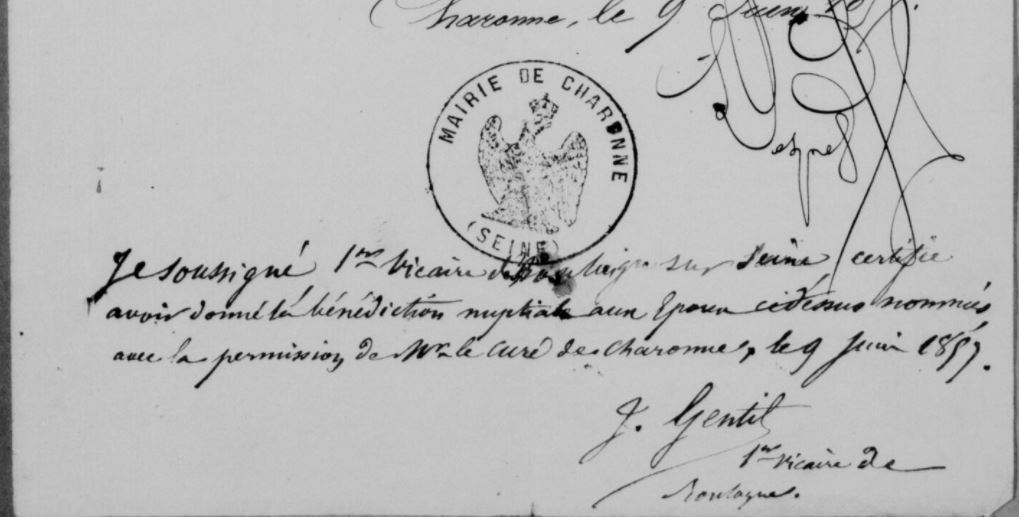 Charonne, le 9 Juin
MAIRIE DE CHARONNE
(SEINE)
Je soussigné 1er Vicaire de Boulogne sur Seine certifie
avoir donné la bénédiction nuptiale aux Epoux cidessus nommés
avec la permission de Mr le Curé de Charonne, le 9 Juin 1857.
J. Gentil
1er Vicaire de
Boulogne.